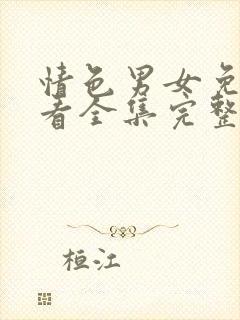 情色男女免
看全集完整
桓江